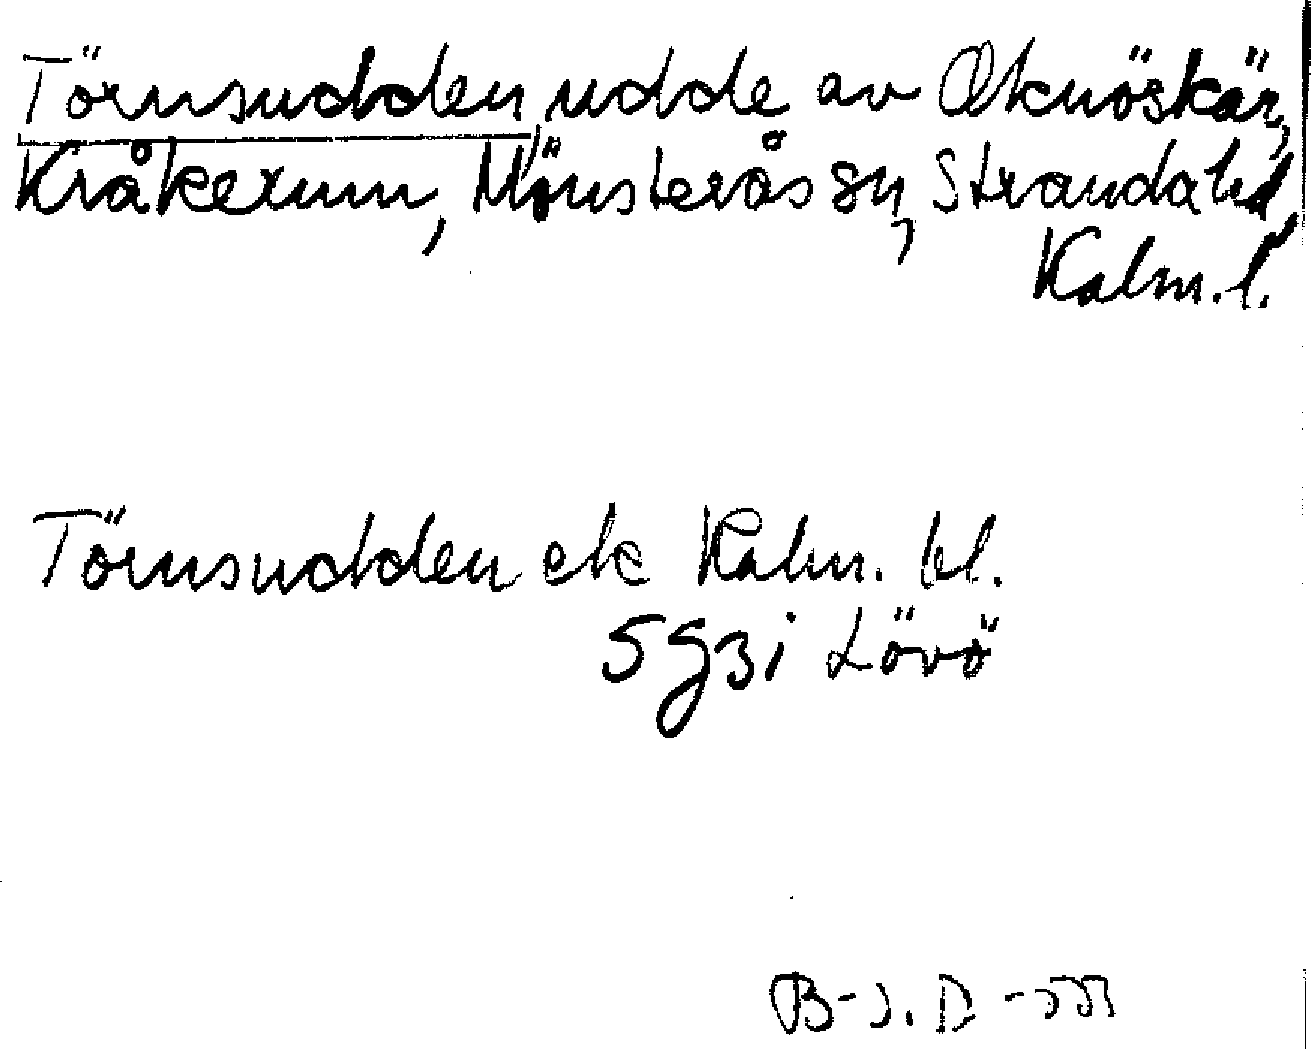 Törnsudden, udde av Oknöskär,
Kråkerum, Mönsterås sn, Stranda hd,
Kalm.l.
Törnsudden ek Kalm. bl.
5g3i Lövö